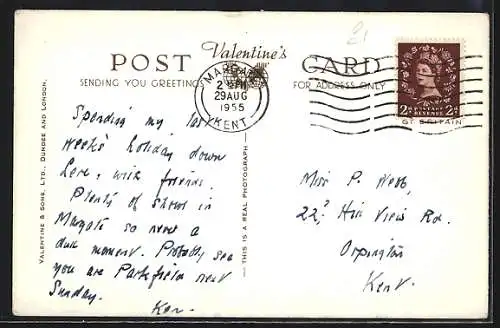 £1
Valentine's
POST CARD
SENDING YOU GREETINGS
FOR ADDRESS ONLY
MARGATE
2 PM
29 AUG
1955
KENT
POSTAGE
REVENUE
Spending my last
week's holiday down
here, with friends.
Plenty of shows in
Margate so never a
dull moment. Probably see
you are Parkfield next
Sunday.
Ken.
Miss P. Webb,
22, Hill View Rd.
Orpington
Kent.
VALENTINE & SONS, LTD., DUNDEE AND LONDON.
THIS IS A REAL PHOTOGRAPH
GT. BRITAIN